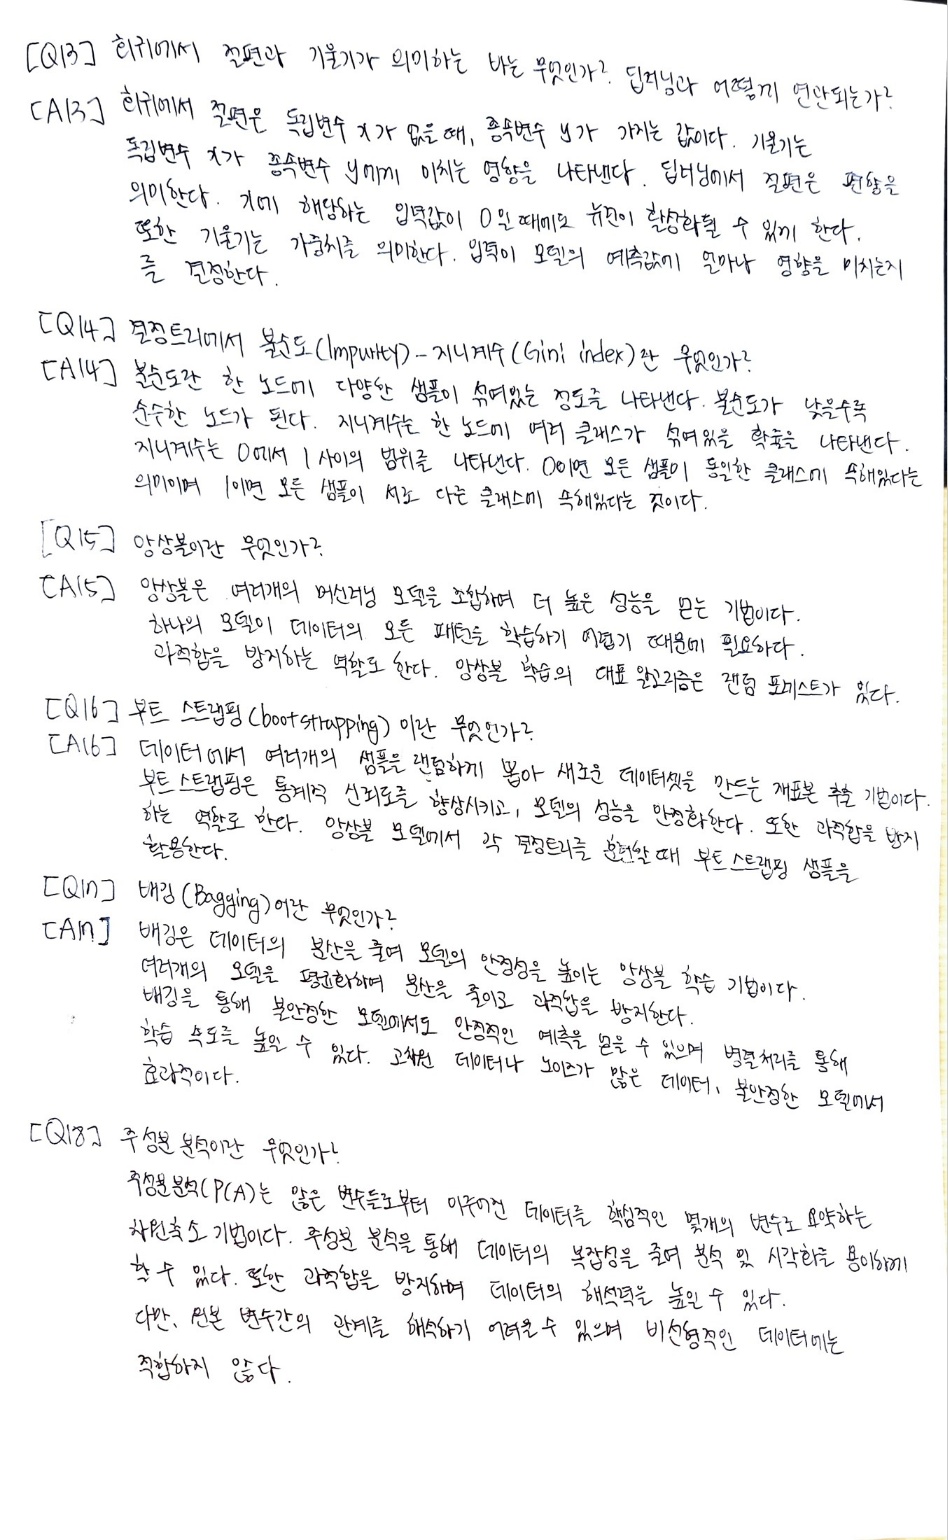 [Q13] 회귀에서 절편과 기울기가 의미하는 바는 무엇인가? 딥러닝과 어떻게 연관되는가?
[A13] 회귀에서 절편은 독립변수 x가 없을 때, 종속변수 y가 가지는 값이다. 기울기는
독립변수 x가 종속변수 y에게 미치는 영향을 나타낸다. 딥러닝에서 절편은 편향을
의미한다. x에 해당하는 입력값이 0일 때에도 뉴런이 활성화될 수 있게 한다.
또한 기울기는 가중치를 의미한다. 입력이 모델의 예측값에 얼마나 영향을 미치는지
를 결정한다.
[Q14] 결정트리에서 불순도(Impurity) - 지니계수(Gini index)란 무엇인가?
[A14] 불순도란 한 노드에 다양한 샘플이 섞여있는 정도를 나타낸다. 불순도가 낮을수록
순수한 노드가 된다. 지니계수는 한 노드에 여러 클래스가 섞여있을 확률을 나타낸다.
지니계수는 0에서 1 사이의 범위를 나타낸다. 0이면 모든 샘플이 동일한 클래스에 속해있다는
의미이며 1이면 모든 샘플이 서로 다른 클래스에 속해있다는 것이다.
[Q15] 앙상블이란 무엇인가?
[A15] 앙상블은 여러개의 머신러닝 모델을 조합하여 더 높은 성능을 얻는 기법이다.
하나의 모델이 데이터의 모든 패턴을 학습하기 어렵기 때문에 필요하다.
과적합을 방지하는 역할도 한다. 앙상블 학습의 대표 알고리즘은 랜덤 포레스트가 있다.
[Q16] 부트 스트랩핑(bootstrapping)이란 무엇인가?
[A16] 데이터에서 여러개의 샘플을 랜덤하게 뽑아 새로운 데이터셋을 만드는 재표본 추출 기법이다.
부트스트랩핑은 통계적 신뢰도를 향상시키고, 모델의 성능을 안정화한다. 또한 과적합을 방지
하는 역할도 한다. 앙상블 모델에서 각 결정트리를 훈련할 때 부트스트랩핑 샘플을
활용한다.
[Q17] 배깅(Bagging)이란 무엇인가?
[A17] 배깅은 데이터의 분산을 줄여 모델의 안정성을 높이는 앙상블 학습 기법이다.
여러개의 모델을 평균화하여 분산을 줄이고 과적합을 방지한다.
배깅을 통해 불안정한 모델에서도 안정적인 예측을 얻을 수 있으며 병렬처리를 통해
학습 속도를 높일 수 있다. 고차원 데이터나 노이즈가 많은 데이터, 불안정한 모델에서
효과적이다.
[Q18] 주성분 분석이란 무엇인가?
주성분분석(PCA)는 많은 변수들로부터 이루어진 데이터를 핵심적인 몇개의 변수로 요약하는
차원축소 기법이다. 주성분 분석을 통해 데이터의 복잡성을 줄여 분석 및 시각화를 용이하게
할 수 있다. 또한 과적합을 방지하며 데이터의 해석력을 높일 수 있다.
다만, 원본 변수간의 관계를 해석하기 어려울 수 있으며 비선형적인 데이터에는
적합하지 않다.